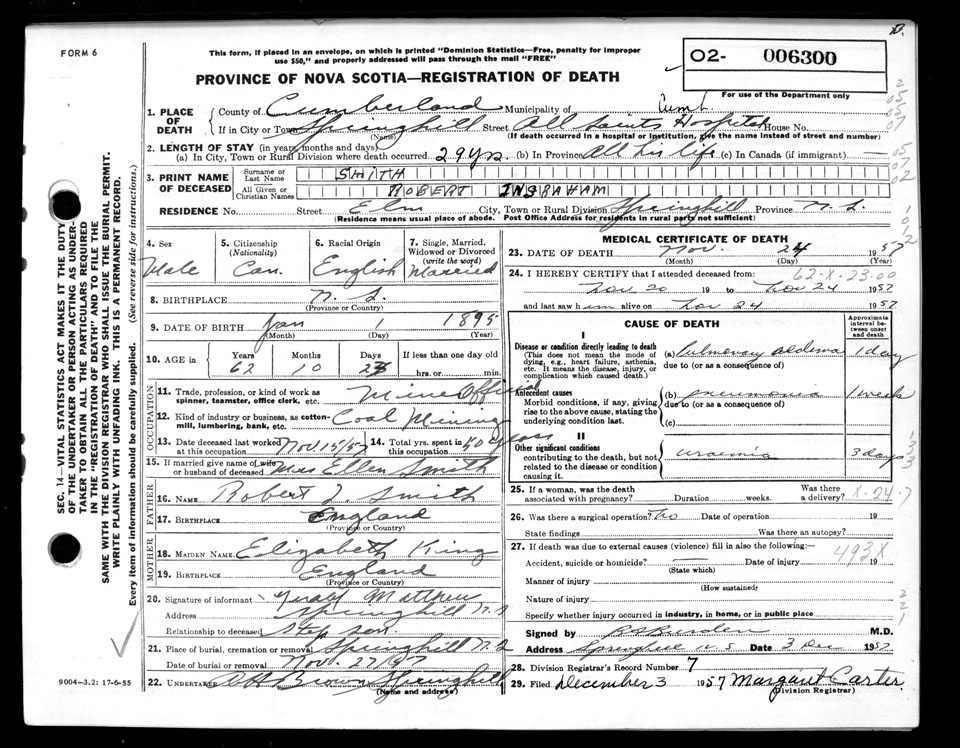 FORM 6
This form, if placed in an envelope, on which is printed "Dominion Statistics—Free, penalty for improper
use $50," and properly addressed will pass through the mail "FREE"
PROVINCE OF NOVA SCOTIA—REGISTRATION OF DEATH
02- 006300
For use of the Department only
1. PLACE OF DEATH County of Cumberland Municipality of Cumb.
If in City or Town Springhill Street All Saints Hospital House No.
(Name) (If death occurred in a hospital or institution, give the name instead of street and number)
2. LENGTH OF STAY (in years, months and days)
(a) In City, Town or Rural Division where death occurred 29 yrs. (b) In Province All his life (c) In Canada (if immigrant) —
3. PRINT NAME OF DECEASED Surname or Last Name SMITH
All Given or Christian Names ROBERT INGRAHAM
RESIDENCE No. Street Elm City, Town or Rural Division Springhill Province N.S.
(Residence means usual place of abode. Post Office Address for residents in rural parts not sufficient)
4. Sex Male
5. Citizenship (Nationality) Can.
6. Racial Origin English
7. Single, Married, Widowed or Divorced (write the word) Married
8. BIRTHPLACE N.S.
(Province or Country)
9. DATE OF BIRTH Jan 1 1895
(Month) (Day) (Year)
10. AGE in Years Months Days If less than one day old
62 10 hrs. or min.
OCCUPATION
11. Trade, profession, or kind of work as spinner, teamster, office clerk, etc. Mine Official
12. Kind of industry or business, as cotton-mill, lumbering, bank, etc. Coal Mining
13. Date deceased last worked at this occupation Nov. 15/57
14. Total yrs. spent in this occupation 40 years
15. If married give name of wife or husband of deceased Mrs Ellen Smith
FATHER
16. NAME Robert J. Smith
17. BIRTHPLACE England
(Province or Country)
MOTHER
18. MAIDEN NAME Elizabeth King
19. BIRTHPLACE England
(Province or Country)
20. Signature of informant Matthew
Address Springhill N.S
Relationship to deceased Step son.
21. Place of burial, cremation or removal Springhill N.S
Date of burial or removal Nov. 27/57
22. UNDERTAKER Brown Springhill
(Name and address)
9004-3.2: 17-6-55
MEDICAL CERTIFICATE OF DEATH
23. DATE OF DEATH Nov. 24 1957
(Month) (Day) (Year)
24. I HEREBY CERTIFY that I attended deceased from: 62-X-23-00
Nov 20 19 to Nov 24 1957
and last saw him alive on Nov 24 1957
CAUSE OF DEATH
Approximate interval between onset and death
I
Disease or condition directly leading to death
(This does not mean the mode of dying, e.g., heart failure, asthenia, etc. It means the disease, injury, or complication which caused death.)
(a) Pulmonary oedema 1 day
due to (or as a consequence of)
Antecedent causes
Morbid conditions, if any, giving rise to the above cause, stating the underlying condition last.
(b) pneumonia 1 week
due to (or as a consequence of)
(c)
II
Other significant conditions
contributing to the death, but not related to the disease or condition causing it.
uraemia 3 days
25. If a woman, was the death associated with pregnancy? Duration weeks. Was there a delivery? X-24-7
26. Was there a surgical operation? No Date of operation 19
State findings Was there an autopsy?
27. If death was due to external causes (violence) fill in also the following:— 493X
Accident, suicide or homicide? Date of injury 19
(State which)
Manner of injury
(How sustained)
Nature of injury
Specify whether injury occurred in industry, in home, or in public place
Signed by Burden M.D.
Address Springhill N S Date 3 Dec 1957
28. Division Registrar's Record Number 7
29. Filed December 3 1957 Margaret Carter
(Division Registrar)
SEC. 14—VITAL STATISTICS ACT MAKES IT THE DUTY
OF THE UNDERTAKER OR PERSON ACTING AS UNDER-
TAKER TO OBTAIN ALL THE PARTICULARS REQUIRED
IN THE "REGISTRATION OF DEATH" AND TO FILE THE
SAME WITH THE DIVISION REGISTRAR WHO SHALL ISSUE THE BURIAL PERMIT.
WRITE PLAINLY WITH UNFADING INK. THIS IS A PERMANENT RECORD.
Every item of information should be carefully supplied. (See reverse side for instructions.)